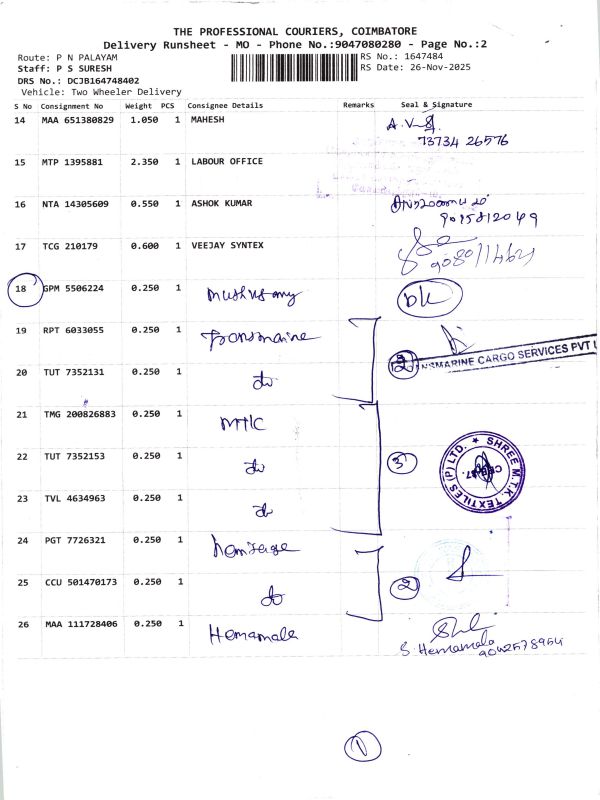 THE PROFESSIONAL COURIERS, COIMBATORE
Delivery Runsheet - MO - Phone No.:9047080280 - Page No.:2
Route: P N PALAYAM
RS No.: 1647484
Staff: P S SURESH
RS Date: 26-Nov-2025
DRS No.: DCJB164748402
Vehicle: Two Wheeler Delivery
S No Consignment No Weight PCS Consignee Details Remarks Seal & Signature
14 MAA 651380829 1.050 1 MAHESH A.V.
73734 26576
15 MTP 1395881 2.350 1 LABOUR OFFICE
16 NTA 14305609 0.550 1 ASHOK KUMAR
9015812049
17 TCG 210179 0.600 1 VEEJAY SYNTEX
18 GPM 5506224 0.250 1
19 RPT 6033055 0.250 1 Transmaine
20 TUT 7352131 0.250 1 do 2 NSMARINE CARGO SERVICES PVT
21 TMG 200826883 0.250 1 MTK
22 TUT 7352153 0.250 1 do 3 SHREE M.T.K. TEXTILES (P) LTD.
23 TVL 4634963 0.250 1 do
24 PGT 7726321 0.250 1
25 CCU 501470173 0.250 1 do 2
26 MAA 111728406 0.250 1 Hemamala
S. Hemamala
9042578954
1